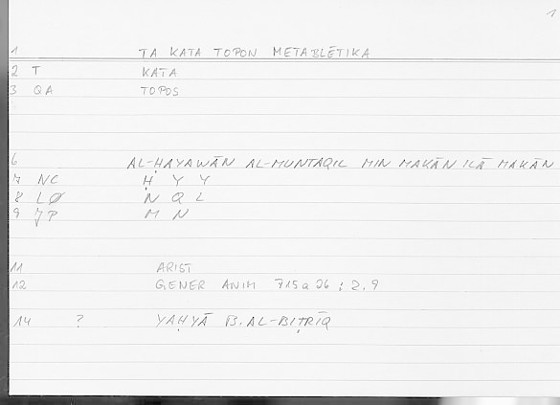 1
1 TA KATA TOPON METABLĒTIKA
2 T KATA
3 QA TOPOS
6 AL-ḤAYAWĀN AL-MUNTAQIL MIN MAKĀN ILĀ MAKĀN
7 NC Ḥ Y Y
8 LØ N Q L
9 JP M N
11 ARIST
12 GENER ANIM 715 a 26 ; 2.9
14 ? YAḤYĀ B. AL-BIṬRĪQ